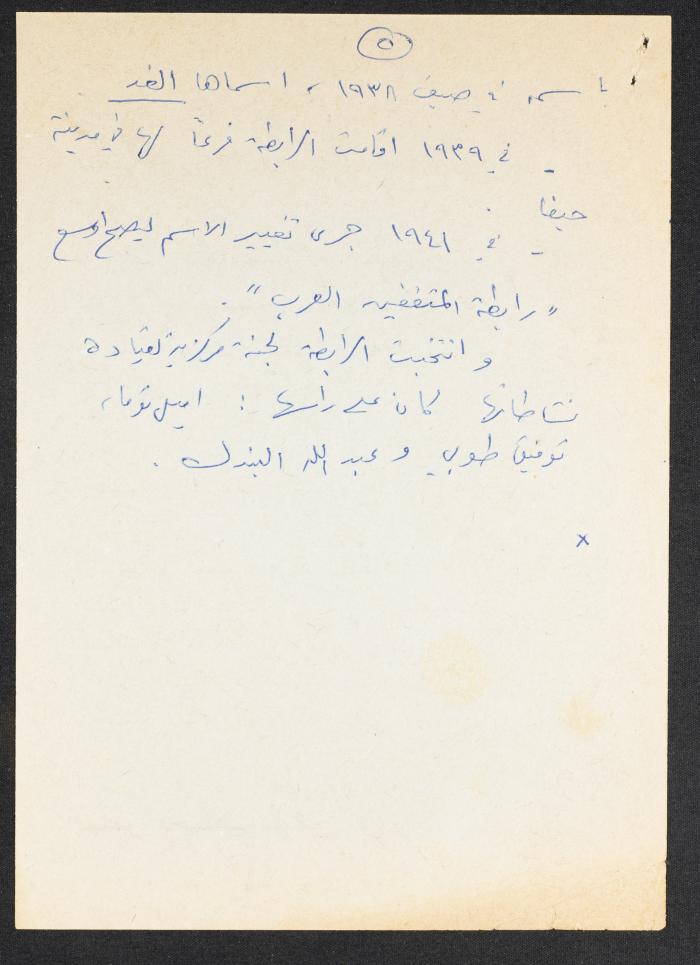 ٥
باسمه في صيف ١٩٣٨، اسماها الغد
- في ١٩٣٩ اقامت الرابطة فرعاً لها في مدينة
حيفا.
- في ١٩٤١ جرى تغيير الاسم ليصبح اوسع
"رابطة المثقفين العرب".
وانتخبت الرابطة لجنة مركزية لقيادة
نشاطاتها كان على رأسها: اميل توما،
توفيق طوبي وعبد الله البندك.
x